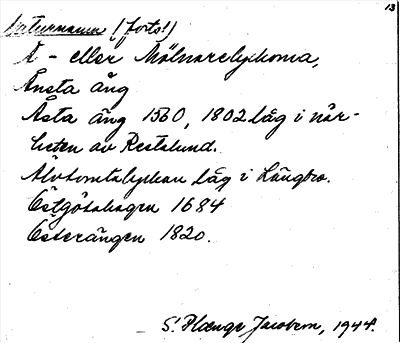 13
Naturnamn (forts!)
Å - eller Mölnarelyckorna,
Änsta äng
Åsta äng 1560, 1802 låg i när-
heten av Restalund.
Älvtomtalyckan låg i Längbro.
Östgötahagen 1684
Österängen 1820.
S. Jacobson, 1944.